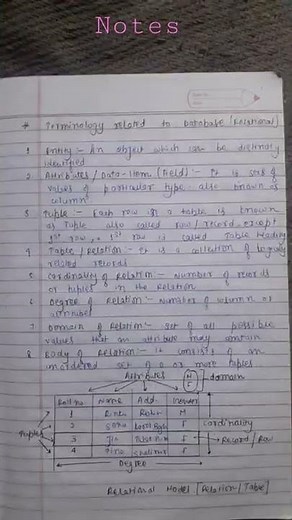 Notes
* Terminology related to Database (Relational)
1 Entity :- An object which can be distinctly
identified
2 Attributes / Data-Item (Field) :- It is set of
values of particular type also known as
column
3 Tuple :- Each row in a table is known
as Tuple also called row/record, except
1st row, 1st row is called Table heading
4 Table / Relation :- It is a collection of logically
related records
5 Cardinality of Relation :- Number of records
or tuples in the Relation
6 Degree of Relation :- Number of column or
attributes
7 Domain of Relation :- set of all possible
values that an attribute may contain
8 Body of Relation :- It consists of an
unordered set of 0 or more tuples
Attributes
M
F
domain
Roll no Name Add.
1 M
2 F
3 Jia F
4 F
Tuples
Cardinality
Record / Row
Degree
Relational Model [Relation / Table]